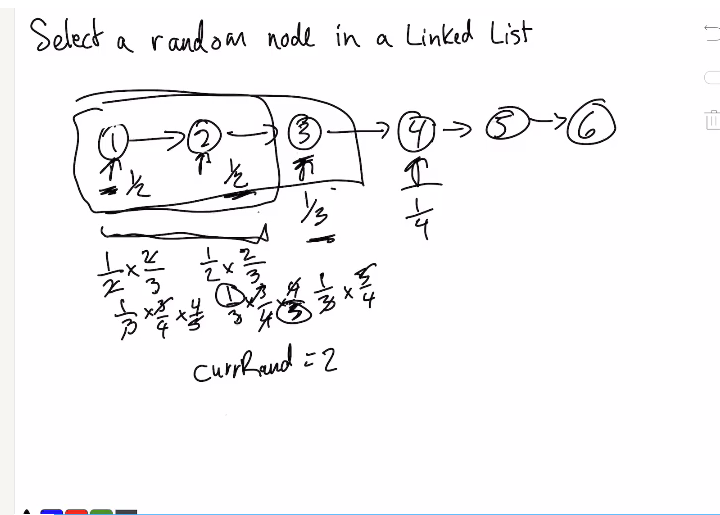 Select a random node in a Linked List
1 → 2 → 3 → 4 → 5 → 6
1/2 1/2
1/3 1/4
1/2 × 2/3 1/2 × 2/3
1/3 × 3/4 × 4/5 1/3 × 3/4 × 4/5 1/3 × 3/4
currRand = 2